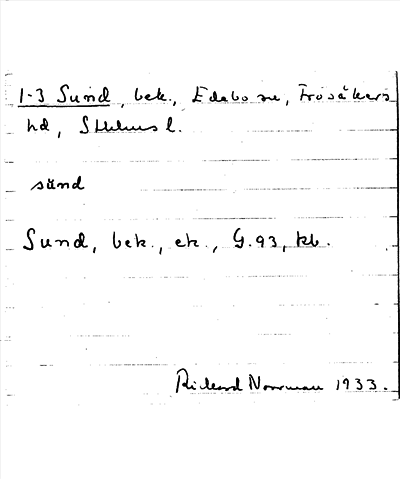 1-3 Sund, bek., Edebo sn, Frösåkers
hd, Sthlms l.
sund
Sund, bek., ek., G.93, kb.
Rickard Norrman 1933.